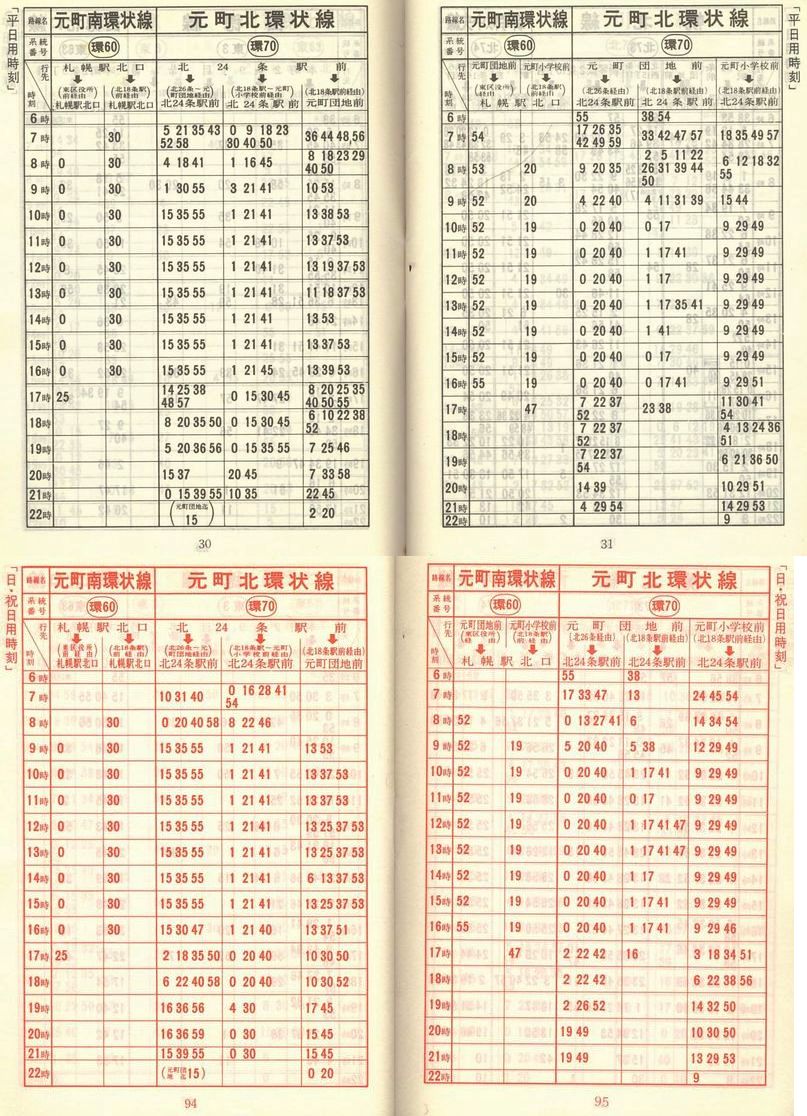 「平日用時刻」
路線名 元町南環状線 元町北環状線
系統番号 環60 環70
行先 時刻 札幌駅北口 北24条駅前
(東区役所前経由) 札幌駅北口 (北18条駅前経由) 札幌駅北口 (北26条~元町団地経由) 北24条駅前 (北18条駅~元町小学校前経由) 北24条駅前 (北18条駅前経由) 元町団地前
6時
7時 30 5 21 35 43 52 58 0 9 18 23 30 40 50 36 44 48,56
8時 0 30 4 18 41 1 16 45 8 18 23 29 40 50
9時 0 30 1 30 55 3 21 41 10 53
10時 0 30 15 35 55 1 21 41 13 38 53
11時 0 30 15 35 55 1 21 41 13 37 53
12時 0 30 15 35 55 1 21 41 13 19 37 53
13時 0 30 15 35 55 1 21 41 11 18 37 53
14時 0 30 15 35 55 1 21 41 13 53
15時 0 30 15 35 55 1 21 41 13 37 53
16時 0 30 15 35 55 1 21 45 13 39 53
17時 25 14 25 38 48 57 0 15 30 45 8 20 25 35 40 50 55
18時 8 20 35 50 0 15 30 45 6 10 22 38 52
19時 5 20 36 56 0 15 35 55 7 25 46
20時 15 37 20 45 7 33 58
21時 0 15 39 55 10 35 22 45
22時 (元町団地迄 15) 2 20
30
「平日用時刻」
路線名 元町南環状線 元町北環状線
系統番号 環60 環70
行先 時刻 元町団地前 元町小学校前 元町団地前 元町小学校前
(東区役所前経由) (北18条駅前経由) 札幌駅北口 (北26条経由) 北24条駅前 (北18条駅前経由) 北24条駅前 (北18条駅前経由) 北24条駅前
6時 55 38 54
7時 54 17 26 35 42 49 59 33 42 47 57 18 35 49 57
8時 53 20 9 20 35 2 5 11 22 26 31 39 44 50 6 12 18 32 55
9時 52 20 4 22 40 4 11 31 39 15 44
10時 52 19 0 20 40 0 17 9 29 49
11時 52 19 0 20 40 1 17 41 9 29 49
12時 52 19 0 20 40 1 17 9 29 49
13時 52 19 0 20 40 1 17 35 41 9 29 49
14時 52 19 0 20 40 1 41 9 29 49
15時 52 19 0 20 40 0 17 9 29 49
16時 55 19 0 20 40 0 17 41 9 29 51
17時 47 7 22 37 52 22 23 38 11 30 41 54
18時 7 22 37 52 4 13 24 36 51
19時 7 22 37 54 6 21 36 50
20時 14 39 10 29 51
21時 4 29 54 14 29 53
22時 9
31
「日・祝日用時刻」
路線名 元町南環状線 元町北環状線
系統番号 環60 環70
行先 時刻 札幌駅北口 北24条駅前
(東区役所前経由) 札幌駅北口 (北18条駅前経由) 札幌駅北口 (北26条~元町団地経由) 北24条駅前 (北18条駅~元町小学校前経由) 北24条駅前 (北18条駅前経由) 元町団地前
6時
7時 10 31 40 0 16 28 41 54
8時 30 0 20 40 58 8 22 46
9時 0 30 15 35 55 1 21 41 13 53
10時 0 30 15 35 55 1 21 41 13 37 53
11時 0 30 15 35 55 1 21 41 13 37 53
12時 0 30 15 35 55 1 21 41 13 25 37 53
13時 0 30 15 35 55 1 21 41 13 25 37 53
14時 0 30 15 35 55 1 21 41 6 13 37 53
15時 0 30 15 35 55 1 21 41 13 25 37 53
16時 0 30 15 30 47 1 21 41 13 37 51
17時 25 2 18 35 50 0 20 40 10 30 50
18時 6 22 40 58 0 20 40 10 30 52
19時 16 36 56 4 30 17 45
20時 16 36 59 0 30 15 45
21時 15 39 55 0 30 15 45
22時 (元町団地迄 15) 0 20
94
「日・祝日用時刻」
路線名 元町南環状線 元町北環状線
系統番号 環60 環70
行先 時刻 元町団地前 元町小学校前 元町団地前 元町小学校前
(東区役所前経由) (北18条駅前経由) 札幌駅北口 (北26条経由) 北24条駅前 (北18条駅前経由) 北24条駅前 (北18条駅前経由) 北24条駅前
6時 55 38
7時 17 33 47 13 24 45 54
8時 52 0 13 27 41 6 14 34 54
9時 52 19 5 20 40 5 38 12 29 49
10時 52 19 0 20 40 1 17 41 9 29 49
11時 52 19 0 20 40 0 17 9 29 49
12時 52 19 0 20 40 1 17 41 47 9 29 49
13時 52 19 0 20 40 1 17 41 47 9 29 49
14時 52 19 0 20 40 1 17 9 29 49
15時 52 19 0 20 40 1 17 41 9 29 49
16時 55 19 0 20 40 1 17 41 9 29 46
17時 47 2 22 42 16 3 18 34 51
18時 2 22 42 6 22 38 56
19時 2 26 52 14 32 50
20時 19 49 10 30 50
21時 19 49 13 29 53
22時 9
95